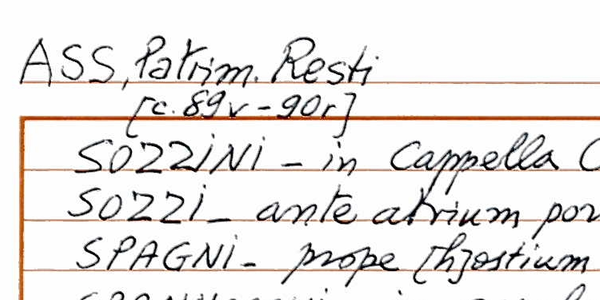 ASS, Patrim. Resti
[c. 89v - 90r]
SOZZINI - in Cappella
SOZZI - ante atrium
SPAGNI - prope [h]ostium